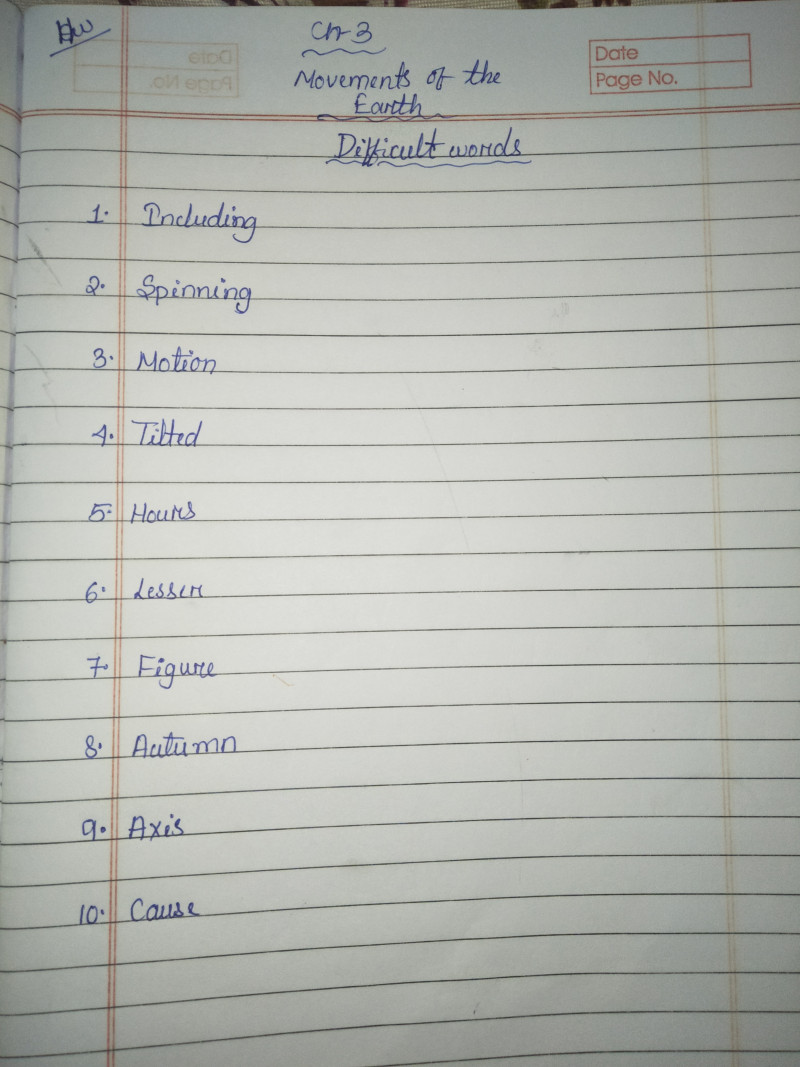 HW
Ch-3
Date
Page No.
Movements of the
Earth
Difficult words
1. Including
2. Spinning
3. Motion
4. Tilted
5. Hours
6. Lesser
7. Figure
8. Autumn
9. Axis
10. Cause